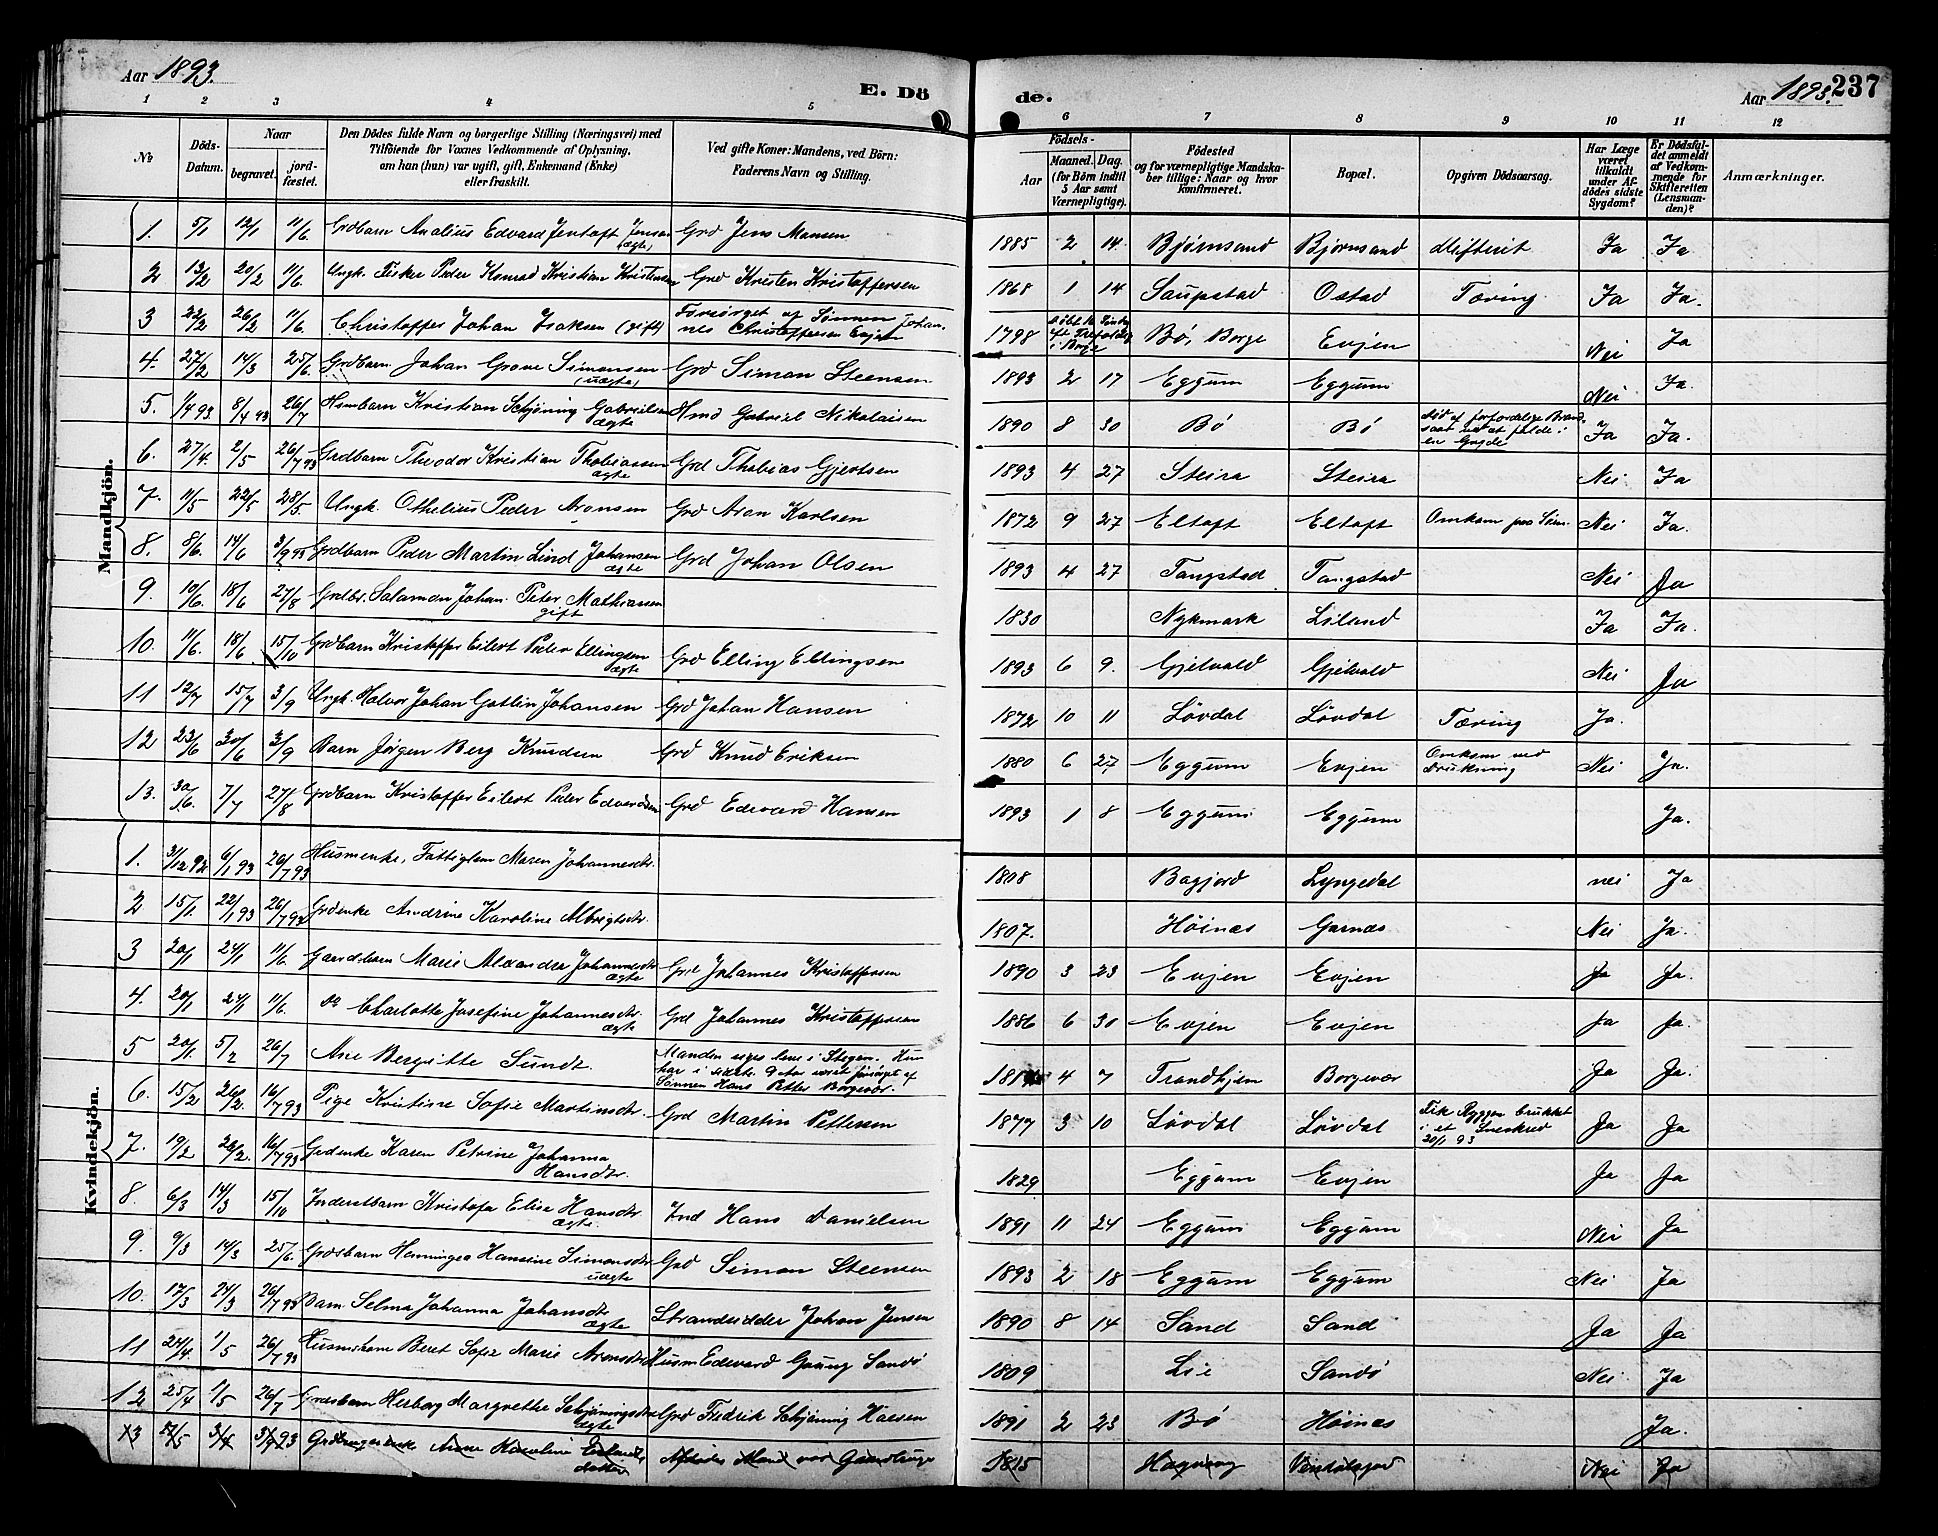 Aar 1893.
E. Dö
de.
Aar 1893.
237
1 2 3 4 5 6 7 8 9 10 11 12
No
Döds-Datum.
Naar
begravet.
jord-fæstet.
Den Dödes fulde Navn og borgerlige Stilling (Næringsvei) med
Tilföiende for Voxnes Vedkommende af Oplysning,
om han (hun) var ugift, gift, Enkemand (Enke)
eller fraskilt.
Ved gifte Koner: Mandens, ved Börn:
Faderens Navn og Stilling.
Födsels-
Aar
Maaned. Dag.
(for Börn indtil
5 Aar samt
Værnepligtige).
Födested
og for værnepligtige Mandska-
ber tillige: Naar og hvor
konfirmeret.
Bopæl.
Opgiven Dödsaarsag.
Har Læge
været
tilkaldt
under Af-
dödes sidste
Sygdom?
Er Dödsfal-
det anmeldt
af Vedkom-
mende for
Skifteretten
(Lensman-
den)?
Anmærkninger.
Mandkjön.
1. 5/1 12/1 11/6. Grdbarn Analius Edvard Jentoft Jensen (ægte) Grd Jens Hansen 1885 2 14. Bjørnsand Bjørnsand Difterit Ja Ja
2 13/2 20/2 11/6. Ungk. Fisker Peder Konrad Kristian Kristensen Grd Kristen Kristoffersen 1868 1 14 Saupstad Ostad Tæring Ja Ja.
3 22/2 26/2 11/6. Christoffer Johan Isaksen (gift) Forsørget af Sønnen Johan-
nes Christoffersen Evjen 1798 i Borge Bø, Borge Evjen Nei Ja
4. 27/2 14/3 25/6. Grdbarn Johan Grove Simonsen (uægte) Grd Simon Steensen 1893 2 17 Eggum Eggum Nei Ja.
5. 1/4 93 8/4 93 26/7 Hsmbarn Kristian Schjöning Gabrielsen ægte Hmd Gabriel Nikolaisen 1890 8 30 Bø Bø Død af
en Gryde Ja Ja.
6. 27/4. 2/5 26/7 93 Grdbarn Theodor Kristian Thobiassen ægte Grd Thobias Gjertsen 1893 4 27 Steira Steira Nei Ja
7. 11/5 22/5 28/5 Ungk. Othelius Peder Aronsen Grd Aron Karlsen 1872 9 27 Eltoft Eltoft Omkom paa Søen. Nei Ja.
8. 8/6. 14/6 3/9 93 Grdbarn Peder Martin Lind Johansen ægte Grd Johan Olsen 1893 4 27 Tangstad Tangstad Nei Ja
9. 10/6. 18/6 27/8 Grdbr. Salamon Johan Peter Mathiassen gift 1830 Nykmark Liland Ja Ja.
10. 11/6. 18/6 15/10 Grdbarn Kristoffer Eilert Peder Ellingsen ægte Grd Elling Ellingsen 1893 6 9. Gjelvald Gjelvald Nei Ja
11 12/7 15/7 3/9 Ungk. Halvor Johan Gotlin Johansen Grd Johan Hansen 1872 10 11 Løvdal Løvdal Tæring Ja.
12 23/6 30/6 3/9 Barn Jørgen Berg Knudsen Grd Knud Eriksen 1880 6 27 Eggum Evjen Omkom ved
Drukning Nei Ja.
13. 30/6. 7/7 27/8 Grdbarn Kristoffer Eilert Peder Edvardsen Grd Edevard Hansen 1893 1 8 Eggum Eggum Ja.
Kvindekjön.
1. 31/12 92 6/1 93 26/7 93 Husmenke, Fattiglem Maren Johannesdtr. 1808 Bagjord Lyngedal nei Ja
2 15/1. 22/1 93 26/7 93 Grdenke Andrine Karoline Albrigtsdtr. 1807. Høinæs Garnæs Nei Ja.
3 20/1 24/1 11/6. Gaardbarn Marie Alexandra Johannesdtr ægte Grd Johannes Kristoffersen 1890 3 23 Evjen Evjen Ja Ja.
4. 20/1 24/1 11/6. Do Charlotte Josefine Johannesdtr. ægte Grd Johannes Kristoffersen 1886 6 30 Evjen Evjen Ja Ja.
5 20/1. 5/2 26/7 Ane Bergitte Sundt. Manden siges leve i Stegen. Hun
har i sidste 9 Aar været forsørget af
Sønnen Hans Petter Borgevær. 4 7 Trondhjem Borgevær Ja Ja.
6. 15/2 26/2. 16/7 93 Pige Kristine Sofie Martinsdtr. Grd Martin Pettersen 1877 3 10 Løvdal Løvdal Fik Ryggen brukket
i et Sneskred
20/1 93 Ja Ja
7. 19/2 26/2. 16/7 93 Grdenke Karen Petrine Johanna
Hansdtr. 1829 Eggum Evjen Ja Ja
8. 6/3 14/3 15/10 Inderstbarn Kristofa Elise Hansdtr ægte. Ind Hans Danielsen 1891 11 24 Eggum Eggum Nei Ja
9. 9/3 14/3 25/6. Grdsbarn Henningea Hansine Simonsdtr uægte Grd Simon Steensen 1893 2 18 Eggum Eggum Nei Ja
10. 17/3 24/3 26/7 93 Barn Selma Johanna Johansdtr ægte Strandsidder Johan Jensen 1890 8 14 Sand Sand Ja Ja
11 24/4. 1/5 26/7 93 Beret Sofie Marie Aronsdtr Husm Edevard Sandø 1809 Lie Sandø Nei Ja
12 25/4 1/5 26/7 Grdsbarn Herborg Margrethe Schjøningsdtr ægte Grd Fredrik Schjøning Hansen 1891 2 23 Bø Høinæs Ja.
13 3/9 93 Grdbrugerenke Anne Karoline
datter Afdødes Mand var Gaardbruger 1815 Hagvaag Nei Ja